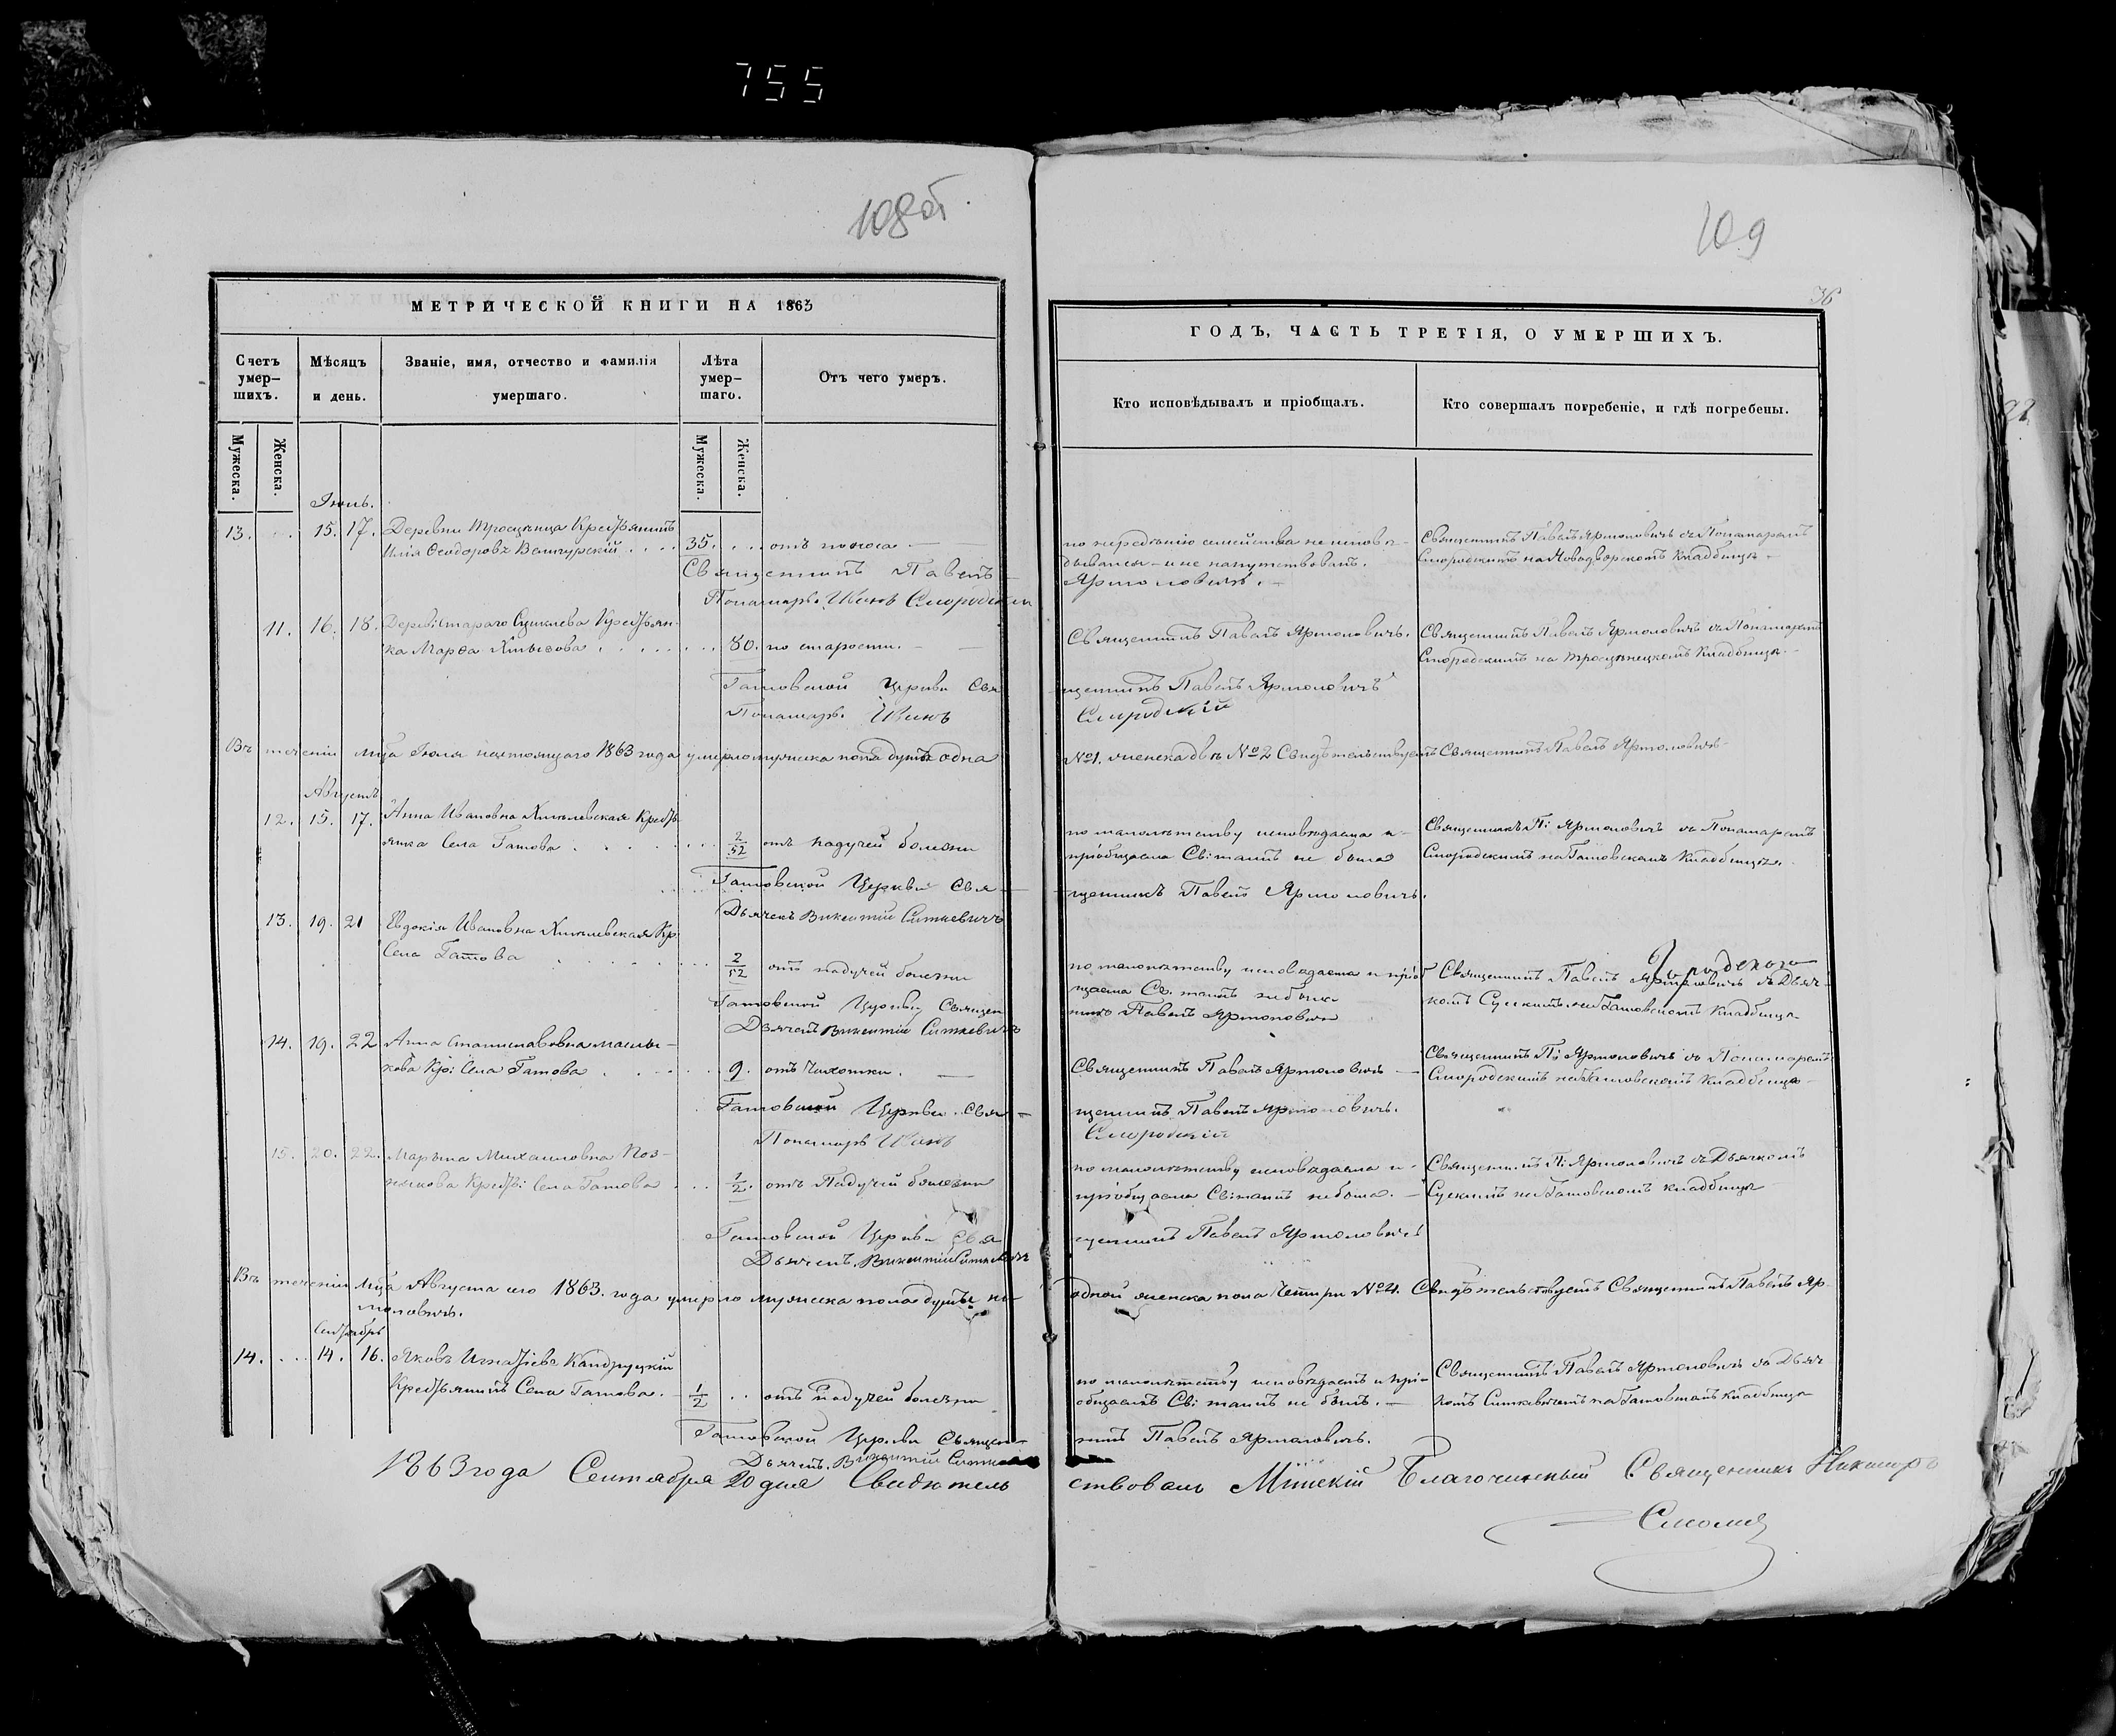 755
108об.
109
36
МЕТРИЧЕСКОЙ КНИГИ НА 1863
ГОДЪ, ЧАСТЬ ТРЕТІЯ, О УМЕРШИХЪ.
Счетъ умер-
шихъ.
Мѣсяцъ
и день.
Званіе, имя, отчество и фамилія
умершаго.
Лѣта
умер-
шаго.
Отъ чего умеръ.
Кто исповѣдывалъ и пріобщалъ.
Кто совершалъ погребеніе, и гдѣ погребены.
Мужеска.
Женска.
Мужеска.
Женска.
Іюль.
13. 15. 17. Деревни Тросценца Крестьянинъ
Илія Ѳеодоровъ 35. отъ поноса
по нерадѣнію семейства не исповѣ-
дывался и не напутствованъ.
Священникъ Павелъ Ярмоловичъ съ Понамаремъ
Смородскимъ на Новодворскомъ Кладбищѣ
Священникъ Павелъ
Ярмоловичъ.
Понамарь Иванъ Смородскій
11. 16. 18. Крестьян-
ка Марѳа 80. по старости.
Священникъ Павелъ Ярмоловичъ.
Священникъ Павелъ Ярмоловичъ съ Понамаремъ
Смородскимъ на Тросценецкомъ Кладбищѣ.
Гатовской Церкви Свя-
щенникъ Павелъ Ярмоловичъ
Понамарь Иванъ
Смородскій
Въ теченіи м-ца Іюля настоящаго 1863 года умерло мужеска пола душъ одна
№ 1. женска № 2 Свидѣтельствуетъ Священникъ Павелъ Ярмоловичъ
Августъ
12. 15. 17. Анна Ивановна Хмѣлевская Кресть-
янка Села Гатова 2/52 отъ падучей болезни
по малолѣтству исповѣдаема и
пріобщаема Св: таинъ не была
Священникъ П: Ярмоловичъ съ Понамаремъ
Смородскимъ на Гатовскомъ Кладбищѣ.
Гатовской Церкви Свя-
щенникъ Павелъ Ярмоловичъ.
Дьячекъ Викентій Ситкевичъ
13. 19. 21 Евдокія Ивановна Хмѣлевская Кр:
Села Гатова 2/52 отъ падучей болезни
по малолѣтству исповѣдаема и пріоб-
щаема Св. таинъ не была
Священникъ Павелъ Ярмоловичъ съ Дьяч-
комъ на Гатовскомъ Кладбищѣ
Гатовской Церкви Священ-
никъ Павелъ Ярмоловичъ
Дьячекъ Викентій Ситкевичъ
14. 19. 22 Анна Станиславовна
Кр: Села Гатова 9. отъ чахотки.
Священникъ Павелъ Ярмоловичъ
Священникъ П: Ярмоловичъ съ Понамаремъ
Смородскимъ на Гатовскомъ Кладбищѣ
Гатовской Церкви Свя-
щенникъ Павелъ Ярмоловичъ.
Понамарь Иванъ
Смородскій
15. 20. 22. Марьяна Михаиловна Поз-
някова Крест: Села Гатова 1/2. отъ Падучей болезни
по малолѣтству исповѣдаема и
пріобщаема Св: таинъ не была.
Священникъ П: Ярмоловичъ съ Дьячкомъ
на Гатовскомъ кладбищѣ
Гатовской Церкви Свя-
щенникъ Павелъ Ярмоловичъ
Дьячекъ Викентій Ситкевичъ
Въ теченіи м-ца Августа сего 1863. года умерло мужеска пола душъ ни
одной женска пола четыри № 4. Свидѣтельствуетъ Священникъ Павелъ Яр-
моловичъ.
Сентябрь
14. 14. 16. Яковъ Игнатіевъ Кандруцкій
Крестьянинъ Села Гатова. 1/2 отъ падучей болезни
по малолѣтству исповѣдаемъ и прі-
общаемъ Св: таинъ не былъ.
Священникъ Павелъ Ярмоловичъ съ Дьяч-
комъ Ситкевичемъ на Гатовскомъ Кладбищѣ
Гатовской Церкви Священ-
никъ Павелъ Ярмоловичъ.
Дьячекъ Викентій
1863 года Сентября 20 дня Свидѣтель
ствовалъ Минскій Благочинный Священникъ Никаноръ
Смолич